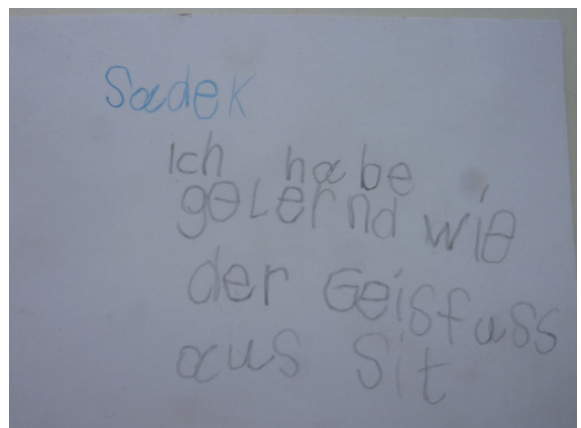 Sadek
Ich habe
gelernd wie
der Geisfuss
aus Sit